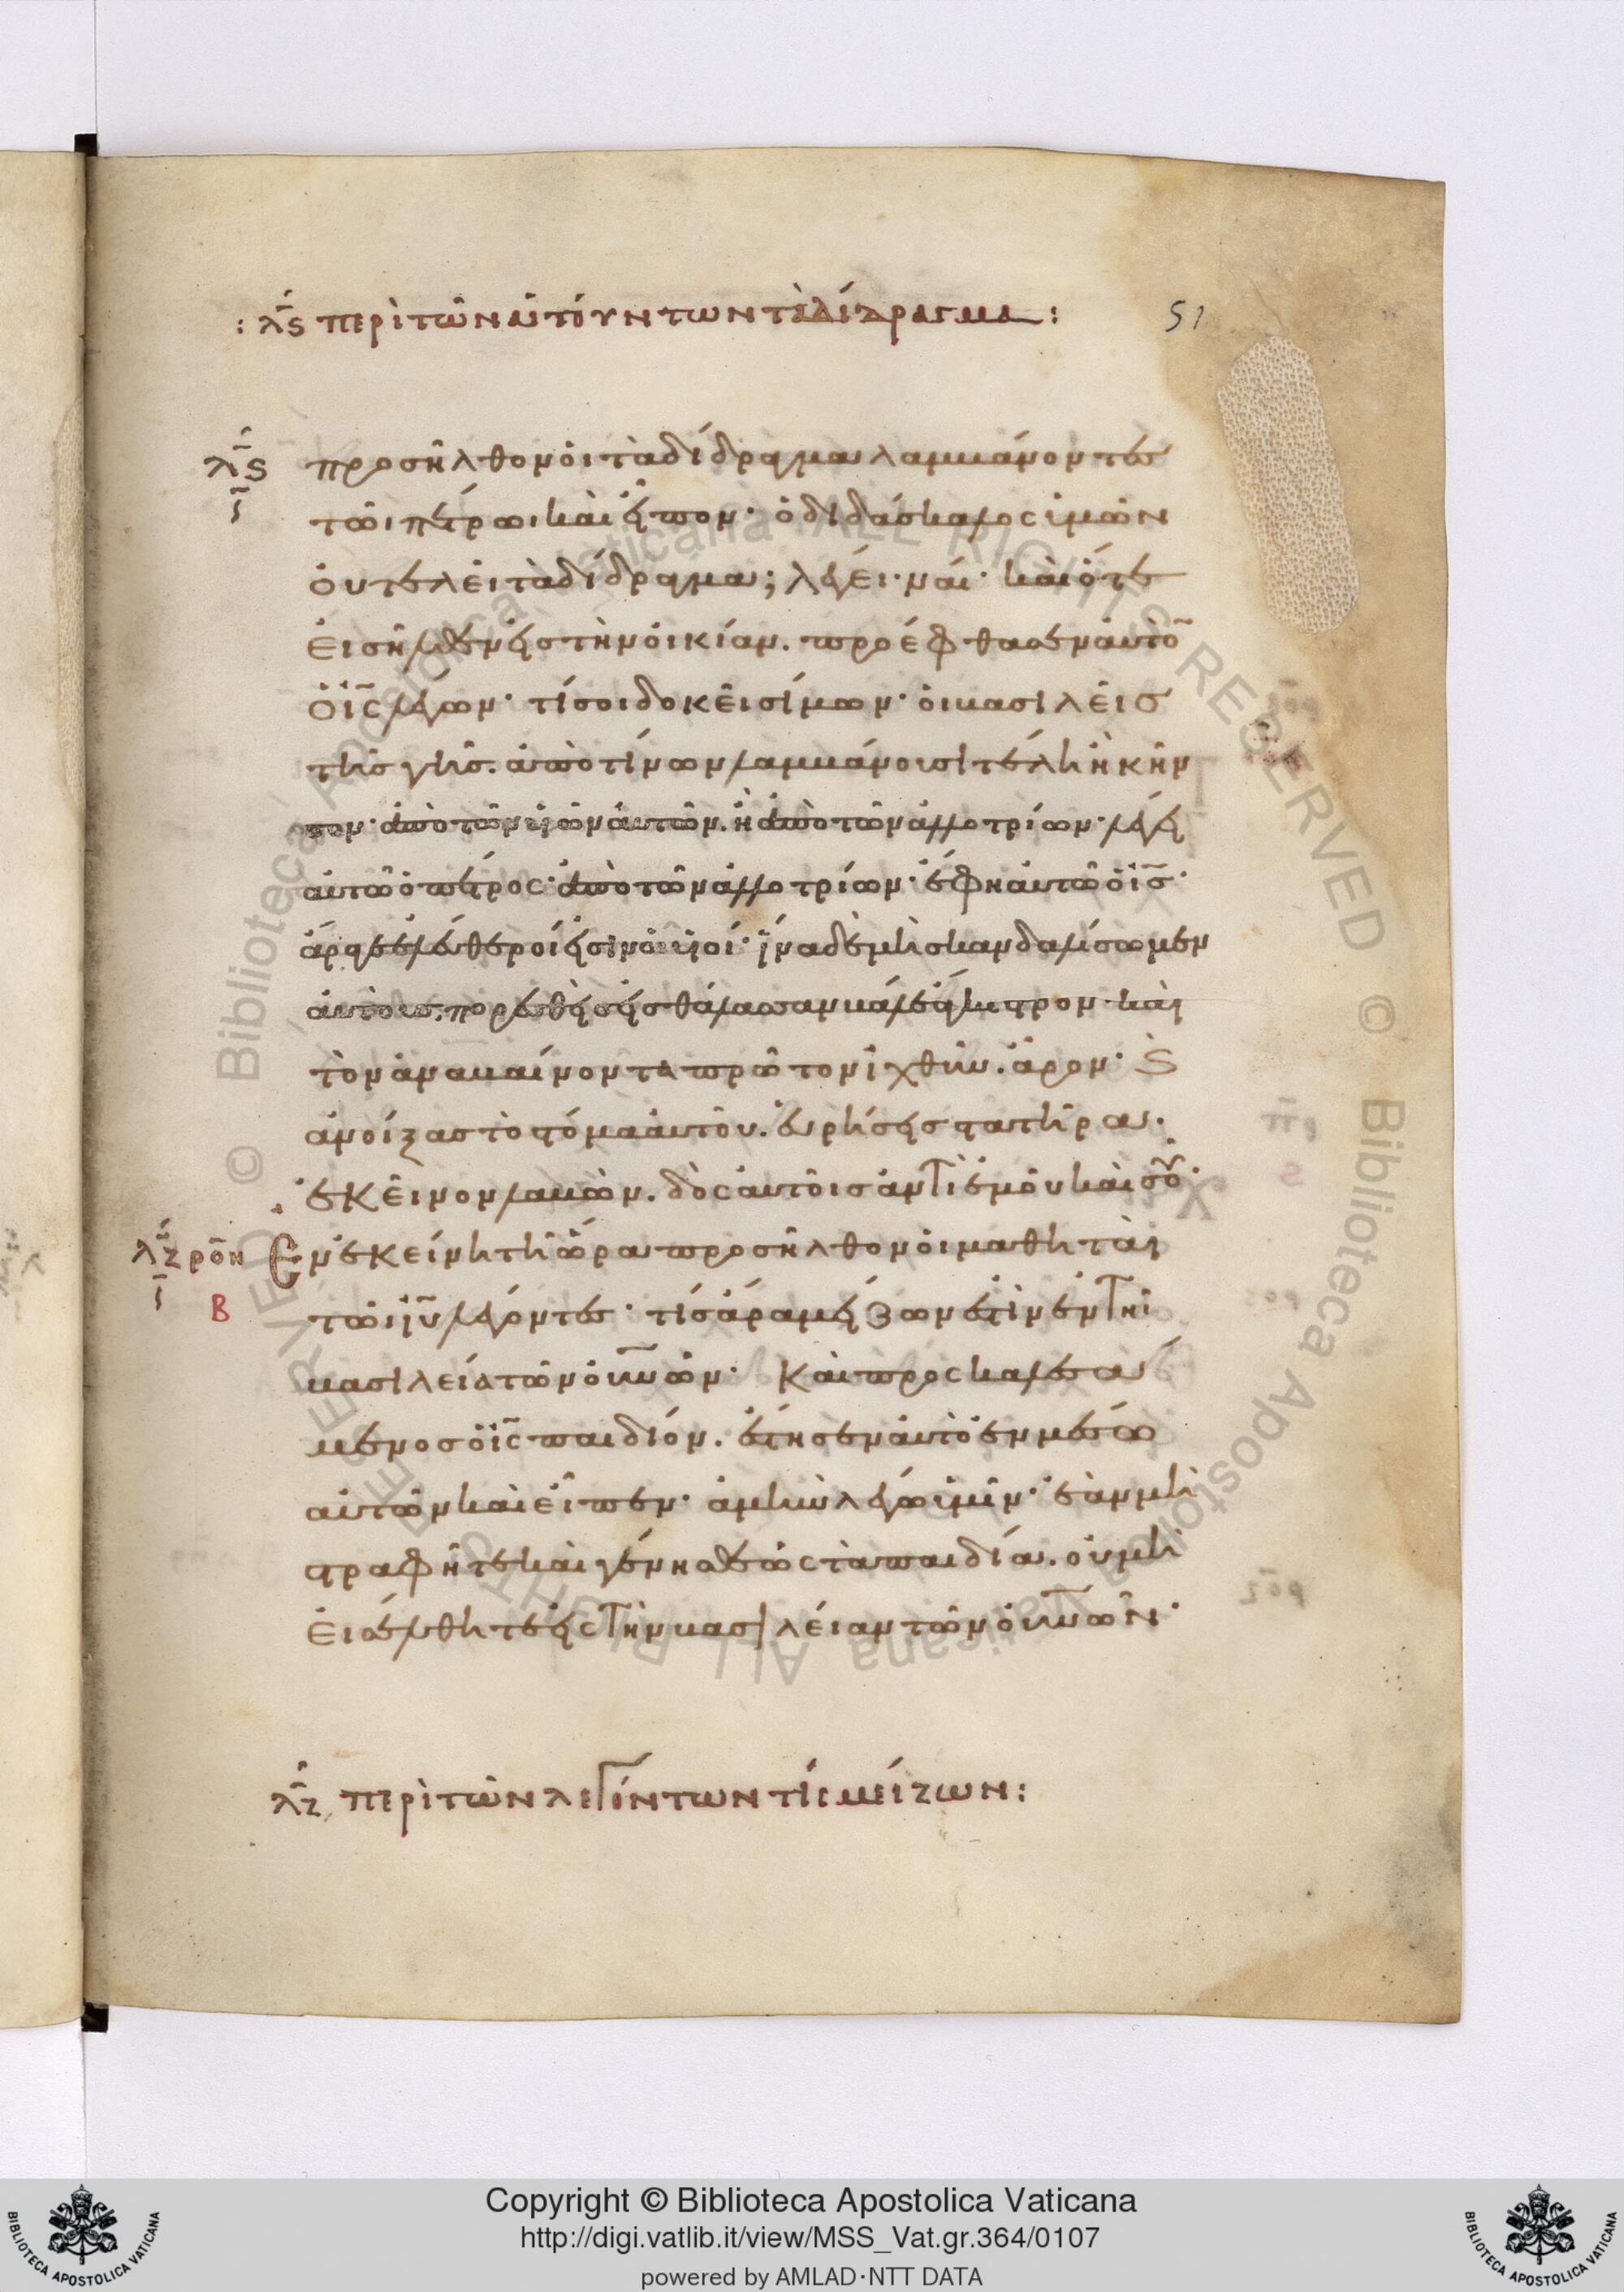 : λϛ περὶ τῶν αἰτούντων τὰ δίδραγμα : 51
λϛ προσῆλθον οἱ τὰ δίδραγμα λαμβάνοντες
ι τῶι πέτρωι καὶ εἶπον· ὁ διδάσκαλος ὑμῶν
οὐ τελεῖ τὰ δίδραγμα; λέγει· ναί· καὶ ὅτε
εἰσῆλθεν εἰς τὴν οἰκίαν. προέφθασεν αὐτὸ̅
ὁ ις̅ λέγων· τί σοι δοκεῖ σίμων· οἱ βασιλεῖς
τῆς γῆς. ἀπὸ τίνων λαμβάνουσι τέλη ἢ κῆν
σον· ἀπὸ τῶν υἱῶν αὐτῶν. ἢ ἀπὸ τῶν ἀλλοτρίων· λέγει
αὐτῶ ὁ πέτρος· ἀπὸ τῶν ἀλλοτρίων· ἔφη αὐτῶ ὁ ις̅·
ἄρα γε ἐλεύθεροί εἰσιν οἱ υἱοί· ἵνα δὲ μὴ σκανδαλίσωμεν
αὐτούς. πορευθεὶς εἰς θάλασσαν βάλε ἄγκιστρον· καὶ
τὸν ἀναβαίνοντα πρῶτον ἰχθὺν. ἆρον· ϗ
ἀνοίξας τὸ στόμα αὐτοῦ. εὑρήσεις στατῆρα.
ἐκεῖνον λαβὼν. δὸς αὐτοῖς ἀντὶ ἐμοῦ καὶ σοῦ·
λζ ρον Ἐν ἐκείνη τῆ ὥρα προσῆλθον οἱ μαθηταὶ
ι Β τῶι ιυ̅ λέγοντες· τίς ἄρα μείζων ἐστὶν ἐν τῆι
βασιλεία τῶν ουνων̅· Καὶ προσκαλεσά
μενος ὁ ις̅ παιδίον. ἔστησεν αὐτὸ ἐν μέσω
αὐτῶν καὶ εἶπεν· ἀμὴν λέγω ὑμῖν· ἐὰν μὴ
στραφῆτε καὶ γένησθε ὡς τὰ παιδία. οὐ μὴ
εἰσέλθητε εἰς τὴν βασιλείαν τῶν ουνων̅·
λζ περὶ τῶν λεγόντων τίς μείζων :
Copyright © Biblioteca Apostolica Vaticana
http://digi.vatlib.it/view/MSS_Vat.gr.364/0107
powered by AMLAD·NTT DATA